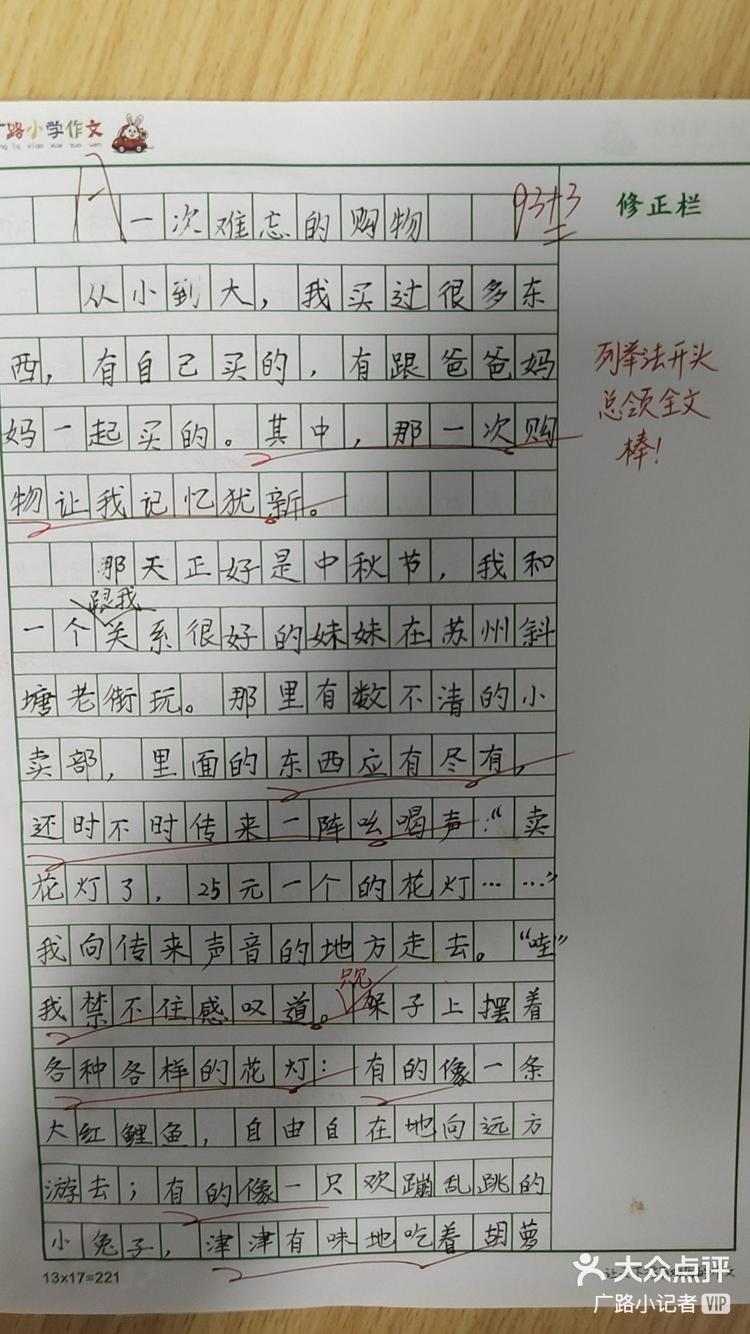 广路小学作文
ng lu xiao xue zuo wen
A 一次难忘的购物 93+3
修正栏
从小到大，我买过很多东
西，有自己买的，有跟爸爸妈
妈一起买的。其中，那一次购
物让我记忆犹新。
列举法开头
总领全文
棒！
那天正好是中秋节，我和
跟我
一个关系很好的妹妹在苏州斜
塘老街玩。那里有数不清的小
卖部，里面的东西应有尽有，
还时不时传来一阵吆喝声：“卖
花灯了，25元一个的花灯……”
我向传来声音的地方走去。“哇”
我禁不住感叹道。架子上摆着
只见
各种各样的花灯：有的像一条
大红鲤鱼，自由自在地向远方
游去；有的像一只欢蹦乱跳的
小兔子，津津有味地吃着胡萝
13x17=221
大众点评
广路小记者 VIP